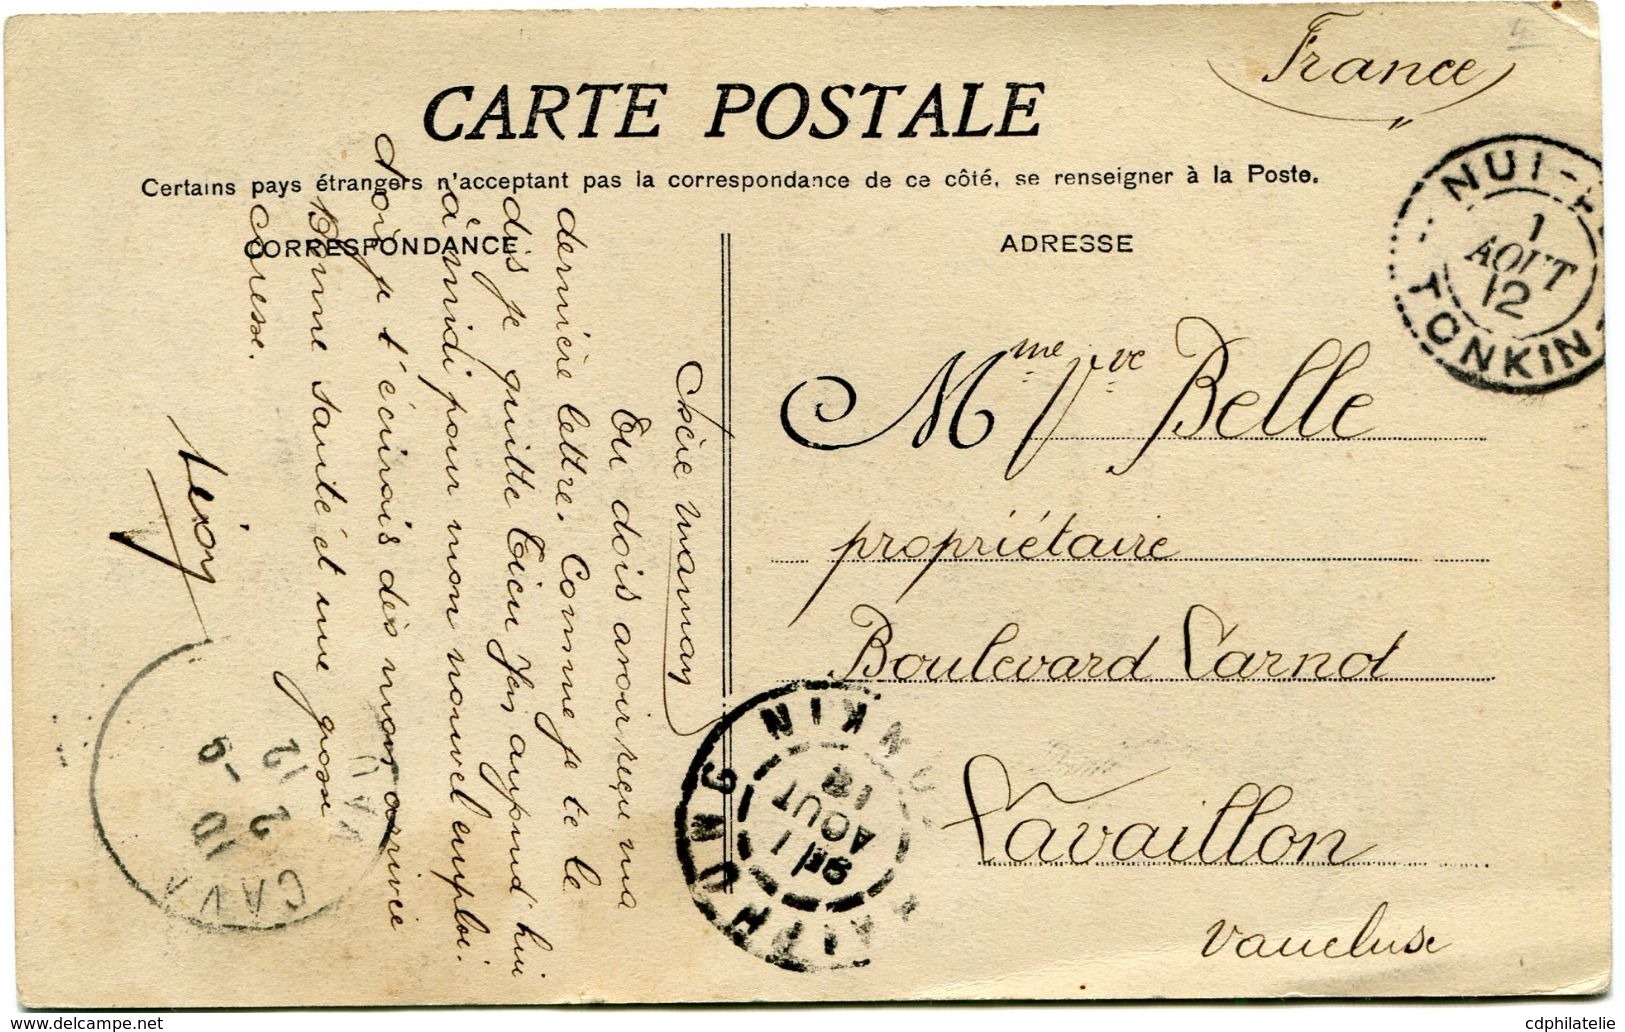 France
CARTE POSTALE
Certains pays étrangers n'acceptant pas la correspondance de ce côté, se renseigner à la Poste.
CORRESPONDANCE
ADRESSE
NUI-
1
AOUT
12
TONKIN
Mme Vve Belle
propriétaire
Boulevard Carnot
Cavaillon
Vaucluse
Chère maman
Tu dois avoir reçu ma
dernière lettre. Comme je te le
dis je quitte Tien Yen aujourd'hui
à midi pour mon nouvel emploi.
dois je t'écirais dès mon arrivée
Bonne santé et une grosse
caresse.
Léon
1
AOUT
12
CAVA
2
12